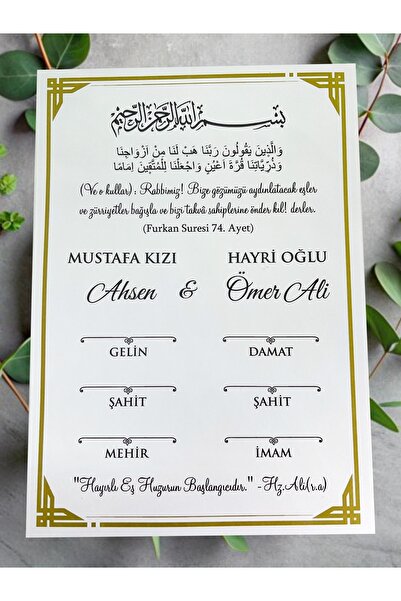 بسم الله الرحمن الرحيم
وَالَّذِينَ يَقُولُونَ رَبَّنَا هَبْ لَنَا مِنْ أَزْوَاجِنَا
وَذُرِّيَّاتِنَا قُرَّةَ أَعْيُنٍ وَاجْعَلْنَا لِلْمُتَّقِينَ إِمَامًا
(Ve o kullar) : Rabbimiz! Bize gözümüzü aydınlatacak eşler
ve zürriyetler bağışla ve bizi takvâ sahiplerine önder kıl! derler.
(Furkan Suresi 74. Ayet)
MUSTAFA KIZI HAYRİ OĞLU
Ahsen & Ömer Ali
GELİN DAMAT
ŞAHİT ŞAHİT
MEHİR İMAM
"Hayırlı Eş Huzurun Başlangıcıdır." -Hz.Ali(r.a)